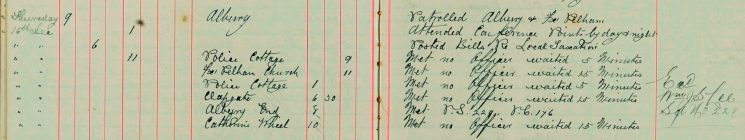 Thursday 9 Albury Patrolled Albury & Fx Pelham
16th Dec 1 Attended Conference Points by day & night
" " 6 Posted Bills Re Local Taxation
" " 11 Police Cottage 9 Met no Officer waited 5 Minutes
" " Fx Pelham Church 11 Met no Officer waited 15 Minutes
" " Police Cottage 1 Met no Officer waited 5 Minutes
" " Clapgate 6 30 Met no Officer waited 15 Minutes
" " Albury End 8 Met P.S. 229. P.C. 176
" " Catherine Wheel 10 Met no Officer waited 15 Minutes